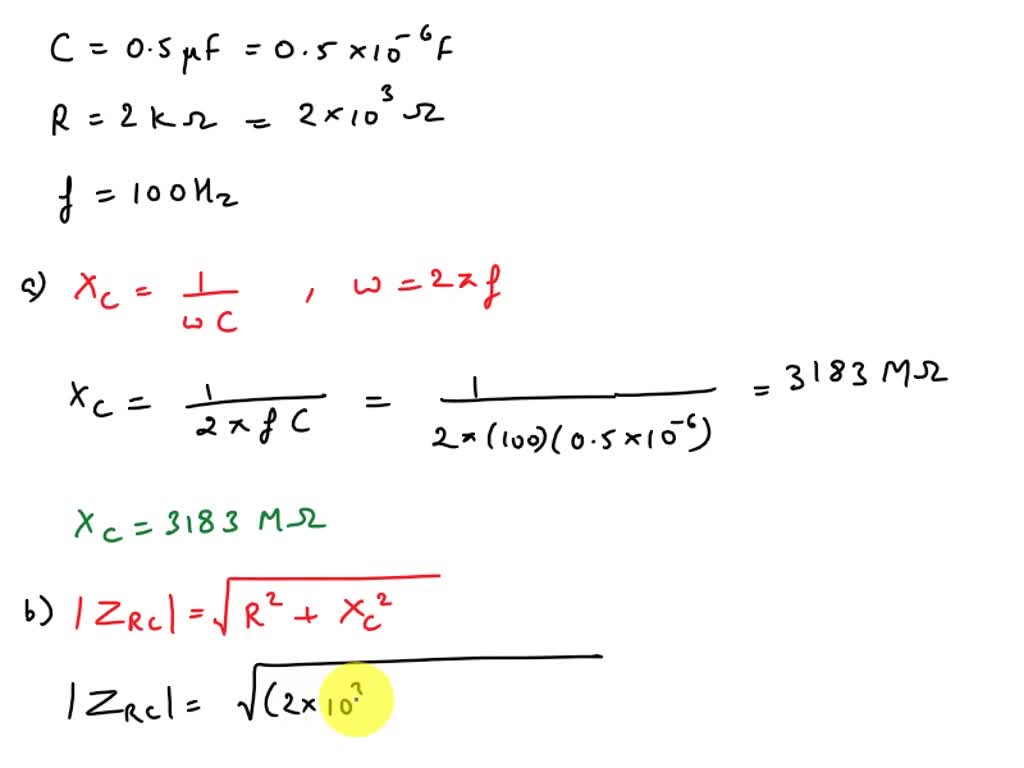 C = 0.5 μF = 0.5 × 10⁻⁶ F
R = 2 kΩ = 2 × 10³ Ω
f = 100 Hz
a) X_C = 1/(ωC) , ω = 2πf
X_C = 1/(2πfC) = 1/(2π(100)(0.5 × 10⁻⁶)) = 3183 MΩ
X_C = 3183 MΩ
b) |Z_RC| = √(R² + X_C²)
|Z_RC| = √(2 × 10³